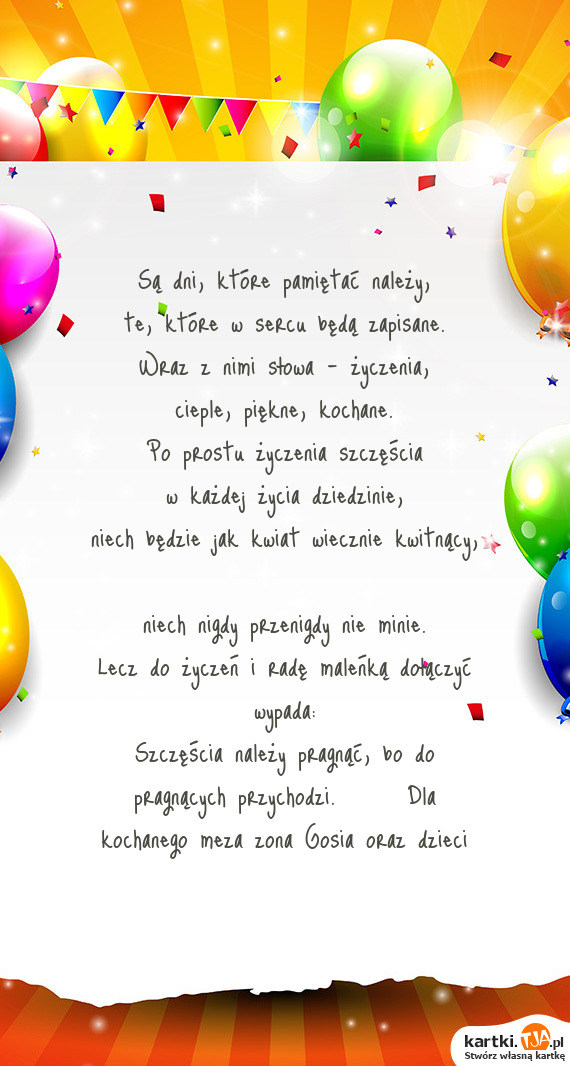 Są dni, które pamiętać należy,
te, które w sercu będą zapisane.
Wraz z nimi słowa - życzenia,
ciepłe, piękne, kochane.
Po prostu życzenia szczęścia
w każdej życia dziedzinie,
niech będzie jak kwiat wiecznie kwitnący,
niech nigdy przenigdy nie minie.
Lecz do życzeń i radę maleńką dołączyć
wypada:
Szczęścia należy pragnąć, bo do
pragnących przychodzi. Dla
kochanego meza zona Gosia oraz dzieci
kartki.TJA.pl
Stwórz własną kartkę